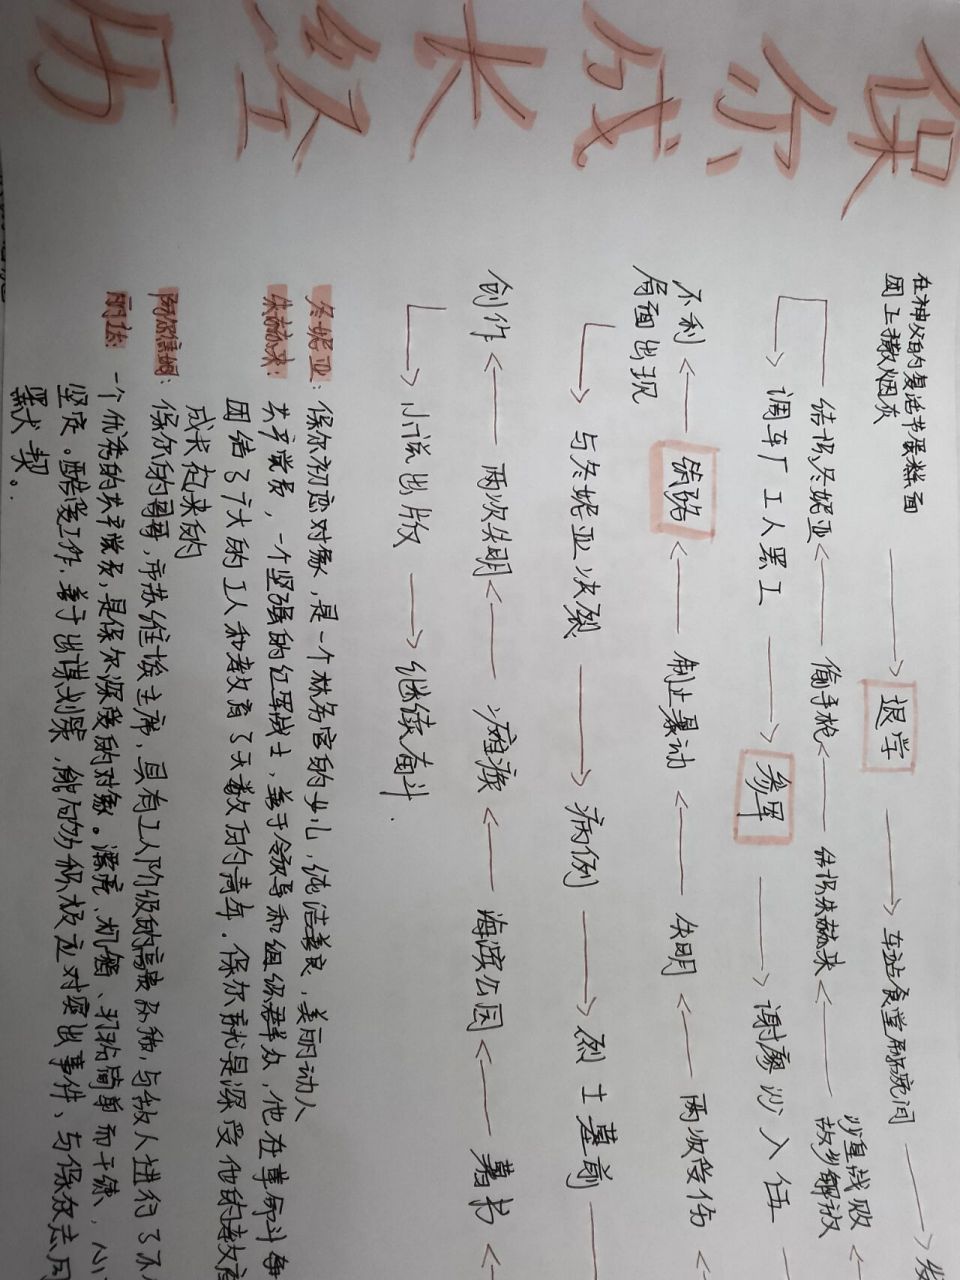 保尔成长经历
在神父的复活节蛋糕面
团上撒烟灰 → 退学 → 车站食堂 → 发
结识冬妮亚 ← 偷手枪 ← 结识朱赫来 ← 沙皇战败
故乡解放 ←
调车厂工人罢工 → 参军 → 谢廖沙入伍
不利
局面出现 ← 筑路 ← 制止暴动 ← 失明 ← 两次受伤 ←
与冬妮亚决裂 → 病例 → 烈士墓前
创作 ← 两次失明 ← 瘫痪 ← 海滨公园 ← 著书 ←
小说出版 → 继续奋斗.
冬妮亚:保尔初恋对象,是一个林务官的女儿,纯洁善良,美丽动人
朱赫来:共产党员,一个坚强的红军战士,善于领导和组织群众,他在革命斗争
团结了广大的工人和教育了无数的青年.保尔就是深受他的教育
成长起来的
阿尔焦姆:保尔的哥哥,市苏维埃主席,具有工人阶级的高贵品格,与敌人进行了不
丽达:一个优秀的共产党员,是保尔深爱的对象。漂亮、机智、打扮简单而干练,心
坚定。酷爱工作,善于出谋划策,能够积极应对突出事件、与保尔志同
默契。